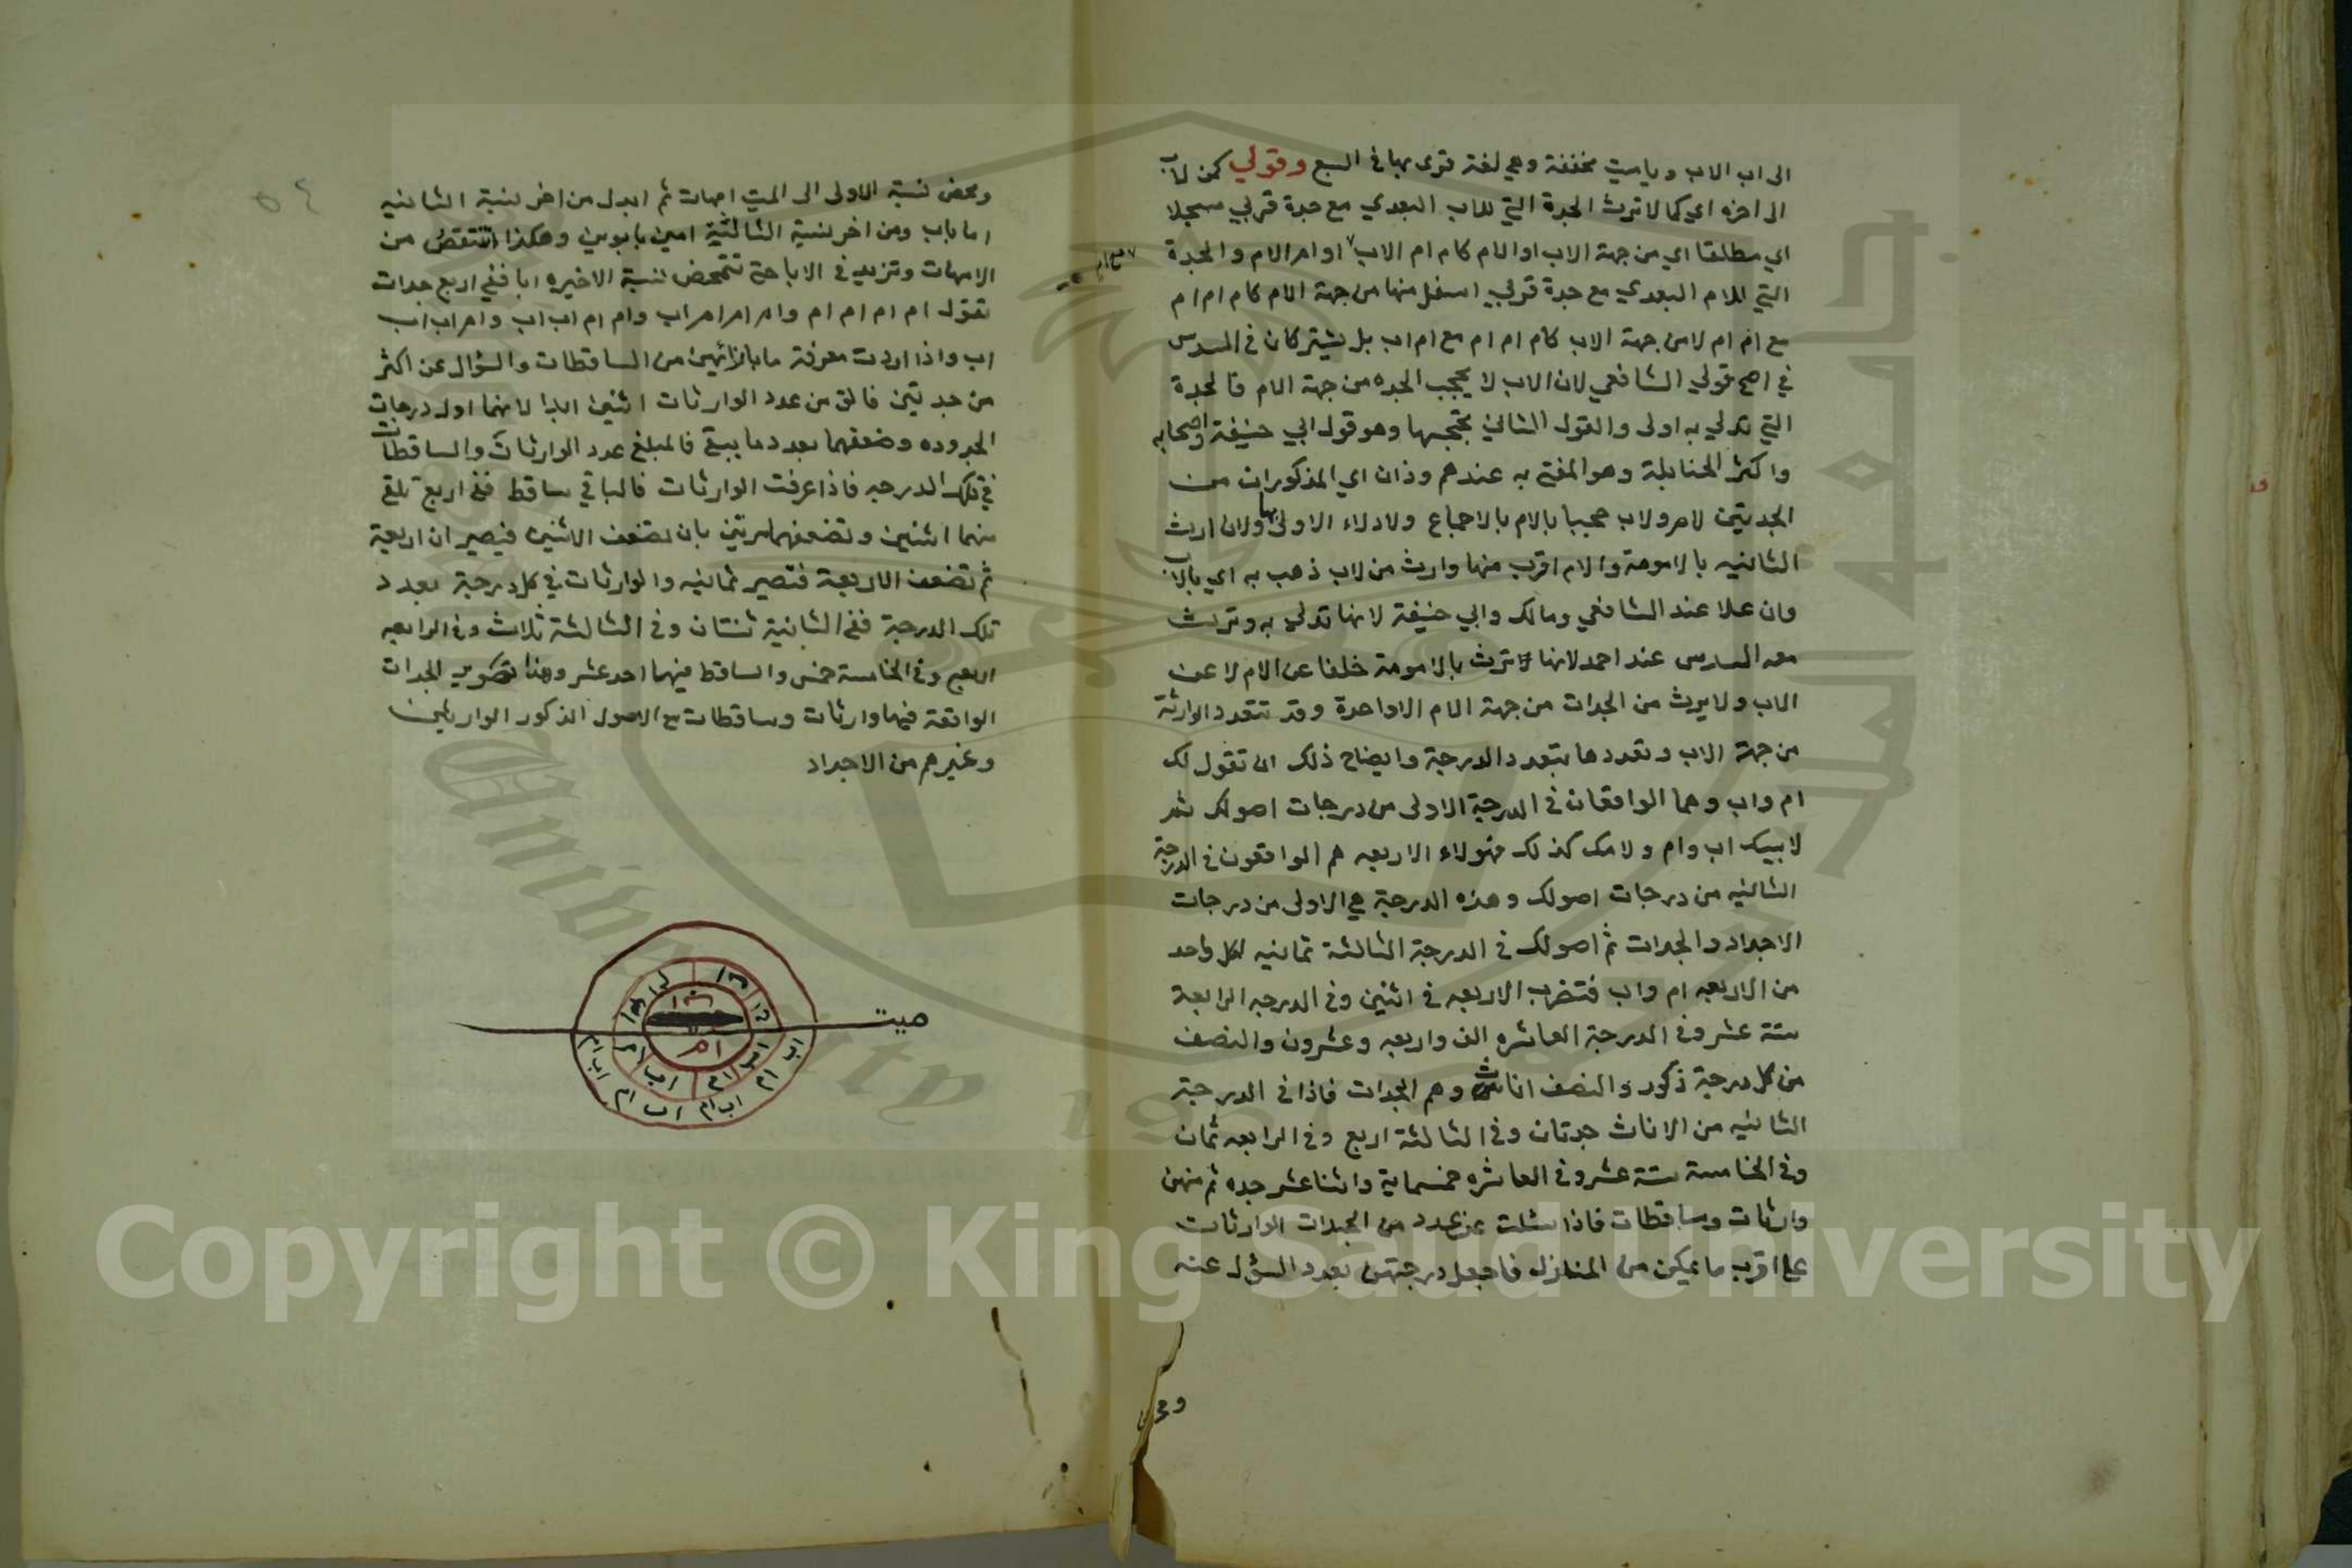 الى اب الاب وياميت مخففة وهي لغة قرى بها في السبع وقولي كمن لاب
الى اخره اي كما لا ترث الجدة التي للاب البعدي مع جدة قربي مسجلا
اي مطلقا اي من جهة الاب او الام كام ام الاب او ام الام والجدة
التي للام البعدي مع جدة قربي اسفل منها من جهة الام كام ام ام
مع ام ام لا من جهة الاب كام ام ام مع ام اب بل يشتركان في السدس
في اصح قولي الشافعي لان الاب لا يحجب الجده من جهة الام فالجدة
التي تدلي به اولى والقول الثاني يحجبها وهو قول ابي حنيفة واصحابه
واكثر الحنابلة وهو المفتى به عندهم وذان اي المذكوران من
الجدتين لام ولاب حجبا بالام بالاجماع ولادلاء الاولى بها ولان ارث
الثانيه بالامومة والام اقرب منها وارث من لاب ذهب به اي بالاب
وان علا عند الشافعي ومالك وابي حنيفة لانها تدلي به وترث
معه السدس عند احمد لانها لا ترث بالامومة خلفا عن الام لا عن
الاب ولا يرث من الجدات من جهة الام الا واحدة وقد تتعدد الوارثة
من جهة الاب وتعددها بتعدد الدرجة وايضاح ذلك ان تقول لك
ام واب وهما الواقعان في الدرجة الاولى من درجات اصولك ثم
لابيك اب وام ولامك كذلك فهولاء الاربعه هم الواقعون في الدرجة
الثانيه من درجات اصولك وهذه الدرجة هي الاولى من درجات
الاجداد والجدات ثم اصولك في الدرجة الثالثة ثمانيه لكل واحد
من الاربعه ام واب فتضرب الاربعه في اثنين وفي الدرجه الرابعة
ستة عشر وفي الدرجة العاشره الف واربعه وعشرون والنصف
من كل درجة ذكور والنصف اناث وهم الجدات فاذا في الدرجة
الثانيه من الاناث جدتان وفي الثالثة اربع وفي الرابعه ثمان
وفي الخامسة ستة عشر وفي العاشره خمسماية واثنا عشر جده ثم منهن
وارثات وساقطات فاذا سئلت عن عدد من الجدات الوارثات
على اقرب ما يمكن من المنازل فاجعل درجتهن بعدد السؤل عنه
ومحض نسبة الاولى الى الميت امهات ثم ابدل من اخر نسبة الثانيه
اما باب ومن اخر نسبة الثالثة امين بابوين وهكذا تنتقص من
الامهات وتزيد في الابا حتى تتمحض نسبة الاخيره ابا ففي اربع جدات
تقول ام ام ام ام وام ام ام اب وام ام اب اب وام اب اب
اب واذا اردت معرفة ما بازائهن من الساقطات والسؤال عن اكثر
من جدتين فالق من عدد الوارثات اثنين ابدا لانهما اول درجات
الجدوده وضعفهما بعدد ما يبقى فالمبلغ عدد الوارثات والساقطات
في تلك الدرجه فاذا عرفت الوارثات فالباقي ساقط ففي اربع تلقى
منها اثنين وتضعفهما مرتين بان تضعف الاثنين فيصيران اربعة
ثم تضعف الاربعة فتصير ثمانيه والوارثات في كل درجة بعدد
تلك الدرجة ففي الثانية ثنتان وفي الثالثة ثلاث وفي الرابعه
اربع وفي الخامسة خمس والساقط فيها احد عشر وهذا تصوير الجدات
الواقعة فيها وارثات وساقطات مع الاصول الذكور الوارثين
وغيرهم من الاجداد
ميت
ام
اب
ام
اب
ام
اب ام
اب
ام
اب ام
اب
ام
اب ام
Copyright © King Saud University